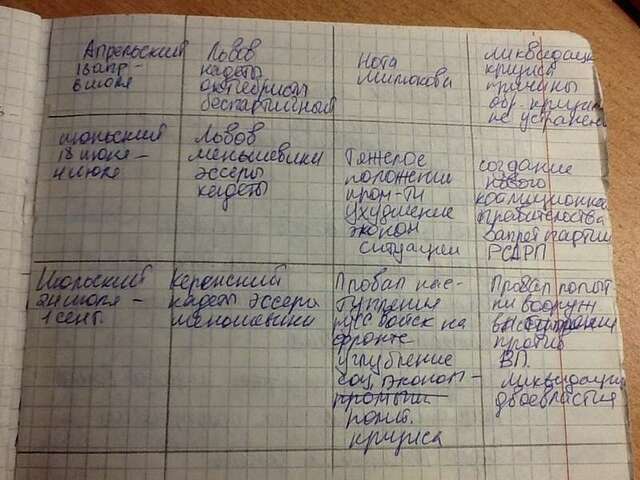 Апрельский
18 апр -
6 июля
Львов
кадеты
октябристы
беспартийный
Нота
Милюкова
ликвидаци
кризиса
причины
обр. кризиса
не устранены
июньский
18 июня -
4 июля
Львов
меньшевики
эссеры
кадеты
Тяжелое
положение
пром-ти
ухудшение
эконом
ситуации
создание
нового
коалиционно
правительства
Запрет партии
РСДРП
Июльский
24 июля -
1 сент.
Керенский
кадеты эссеры
меньшевики
Провал нас-
тупления
русс войск на
фронте
углубление
соц. эконом -
полит.
кризиса
Провал попыт
ки вооруж
выступления
против
ВП.
ликвидация
двоевластия